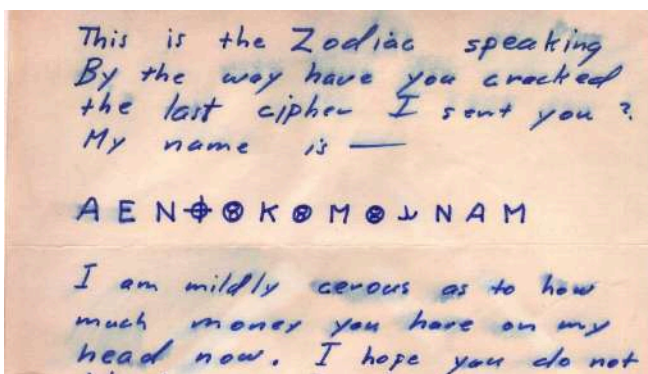 This is the Zodiac speaking
By the way have you cracked
the last cipher I sent you?
My name is —
A E N ⌖ ⊗ K ⊗ M ⊗ ⅃ N A M
I am mildly cerous as to how
much money you have on my
head now. I hope you do not